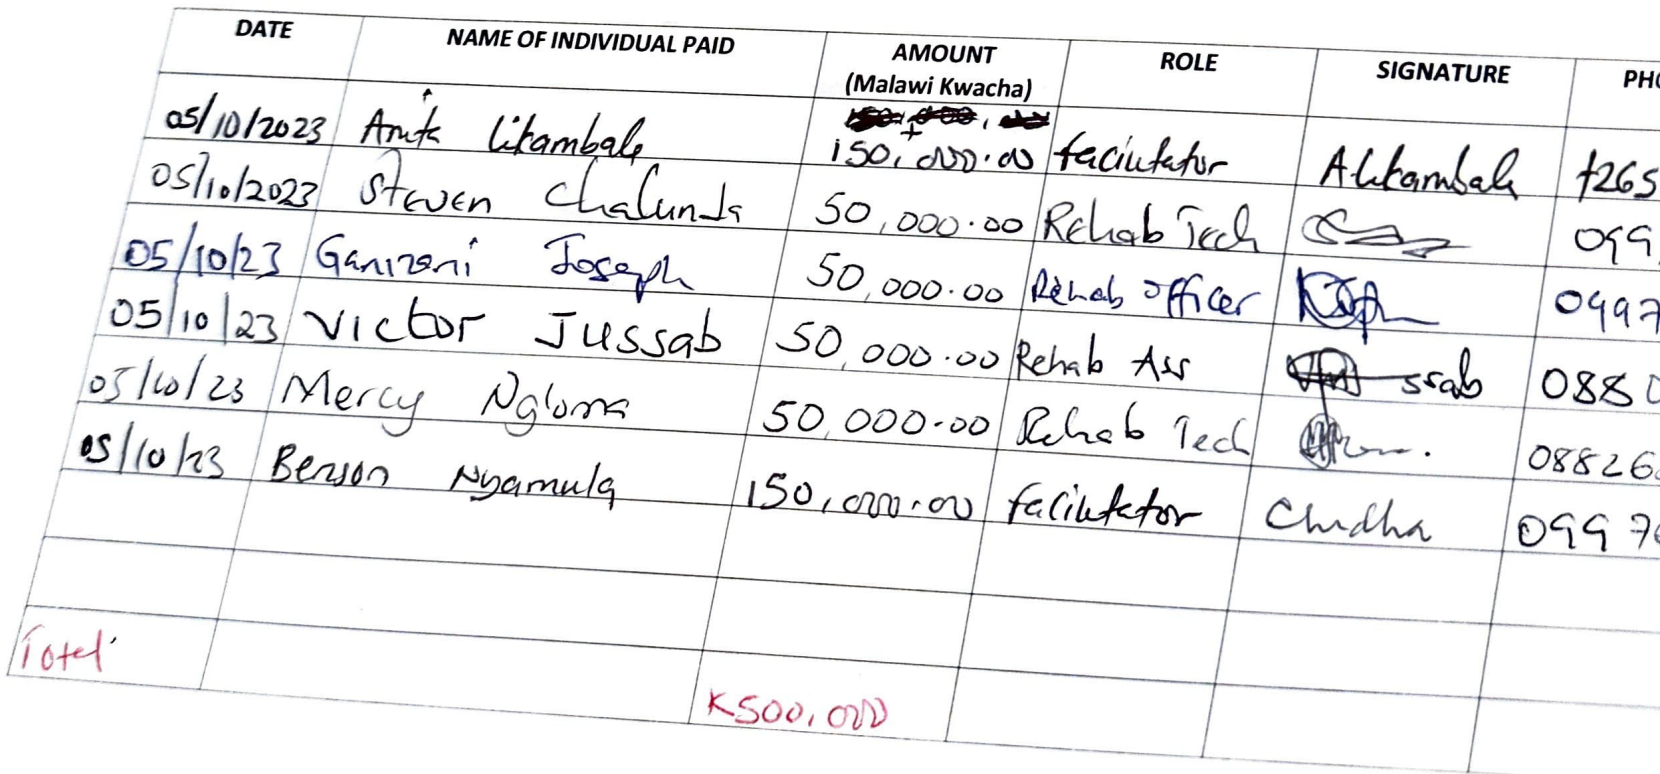 DATE NAME OF INDIVIDUAL PAID AMOUNT (Malawi Kwacha) ROLE SIGNATURE PHO
05/10/2023 Anita Likambale 150,000.00 facilitator ALikambale +265
05/10/2023 Steven Chalunda 50,000.00 Rehab Tech 099
05/10/23 Ganizani Joseph 50,000.00 Rehab officer 0997
05/10/23 Victor Jussab 50,000.00 Rehab Ass ssab 0880
05/10/23 Mercy Ngloma 50,000.00 Rehab Tech 08826
05/10/23 Benson Nyamula 150,000.00 facilitator 099 76
Total K500,000